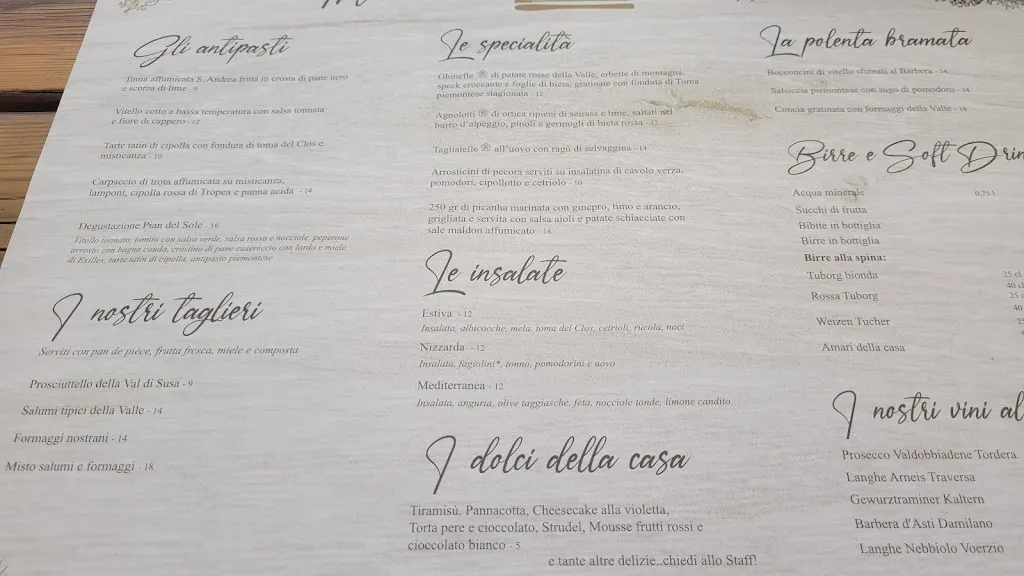 Gli antipasti
Toma affumicata S. Andrea fritta in crosta di pane nero
e scorza di lime - 9
Vitello cotto a bassa temperatura con salsa tomata
e fiore di cappero - 12
Tarte tatin di cipolla con fonduta di toma del Clos e
misticanza - 10
Carpaccio di trota affumicata su misticanza,
lamponi, cipolla rossa di Tropea e panna acida - 14
Degustazione Pian del Sole - 16
Vitello tonnato, tomini con salsa verde, salsa rossa e nocciole, peperone
arrosto con bagna cauda, crostino di pane casereccio con lardo e miele
di Exilles, tarte tatin di cipolla, antipasto piemontese
I nostri taglieri
Serviti con pan de pièce, frutta fresca, miele e composta
Prosciuttello della Val di Susa - 9
Salumi tipici della Valle - 14
Formaggi nostrani - 14
Misto salumi e formaggi - 18
Le specialità
Ghinefle di patate rosse della Valle, erbette di montagna,
speck croccante e foglie di bieta, gratinate con fonduta di Toma
piemontese stagionata - 12
Agnolotti di ortica ripieni di seirass e lime, saltati nel
burro d'alpeggio, pinoli e germogli di bieta rossa - 12
Tagliatelle all"uovo con ragù di selvaggina - 14
Arrosticini di pecora serviti su insalatina di cavolo verza,
pomodori, cipollotto e cetriolo - 10
250 gr di picanha marinata con ginepro, timo e arancio,
grigliata e servita con salsa aioli e patate schiacciate con
sale maldon affumicato - 18
Le insalate
Estiva - 12
Insalata, albicocche, mela, toma del Clos, cetrioli, rucola, noci
Nizzarda - 12
Insalata, fagiolini*, tonno, pomodorini e uovo
Mediterranea - 12
Insalata, anguria, olive taggiasche, feta, nocciole tonde, limone candito
I dolci della casa
Tiramisù, Pannacotta, Cheesecake alla violetta,
Torta pere e cioccolato, Strudel, Mousse frutti rossi e
cioccolato bianco - 5
e tante altre delizie..chiedi allo Staff!
La polenta bramata
Bocconcini di vitello sfumati al Barbera - 14
Salsiccia piemontese con sugo di pomodoro - 14
Concia gratinata con formaggi della Valle - 14
Birre e Soft Drin
Acqua minerale 0,75 l
Succhi di frutta
Bibite in bottiglia
Birre in bottiglia
Birre alla spina:
Tuborg bionda 25 cl
40 cl
Rossa Tuborg 25 c
40
Weizen Tucher
Amari della casa
I nostri vini al
Prosecco Valdobbiadene Tordera
Langhe Arneis Traversa
Gewurztraminer Kaltern
Barbera d'Asti Damilano
Langhe Nebbiolo Voerzio